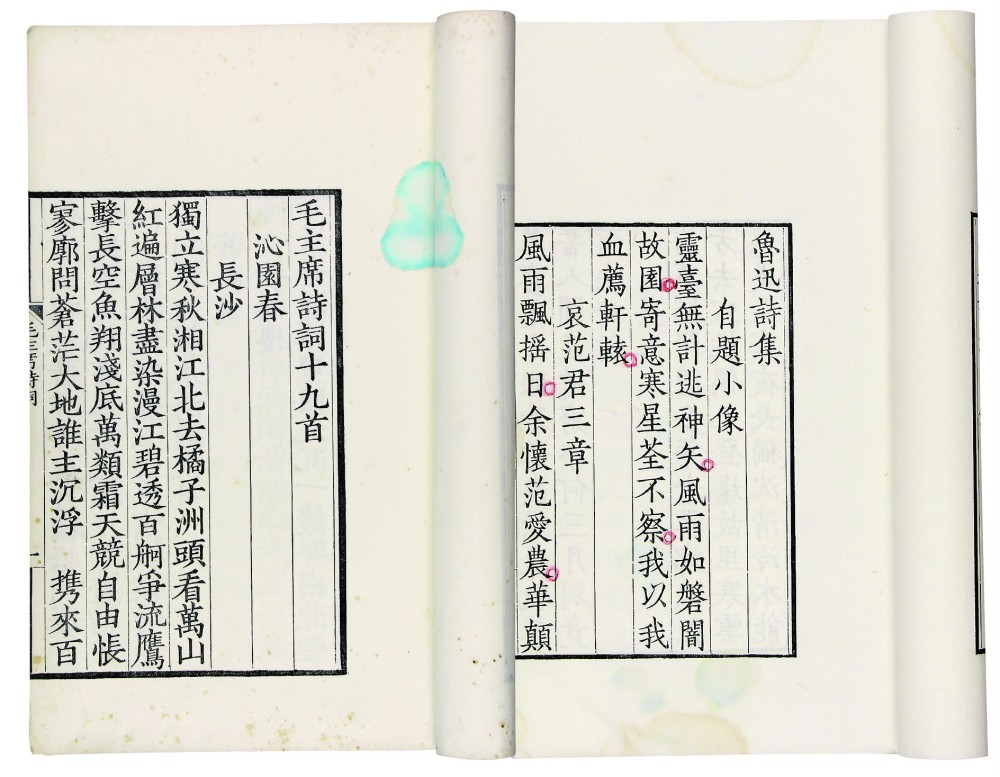 魯迅詩集
自題小像
靈臺無計逃神矢風雨如磐闇
故園寄意寒星荃不察我以我
血薦軒轅
哀范君三章
風雨飄搖日余懷范愛農華顛
毛主席詩詞十九首
沁園春
長沙
獨立寒秋湘江北去橘子洲頭看萬山
紅遍層林盡染漫江碧透百舸爭流鷹
擊長空魚翔淺底萬類霜天競自由悵
寥廓問蒼茫大地誰主沉浮 携來百
毛主席詩詞
一